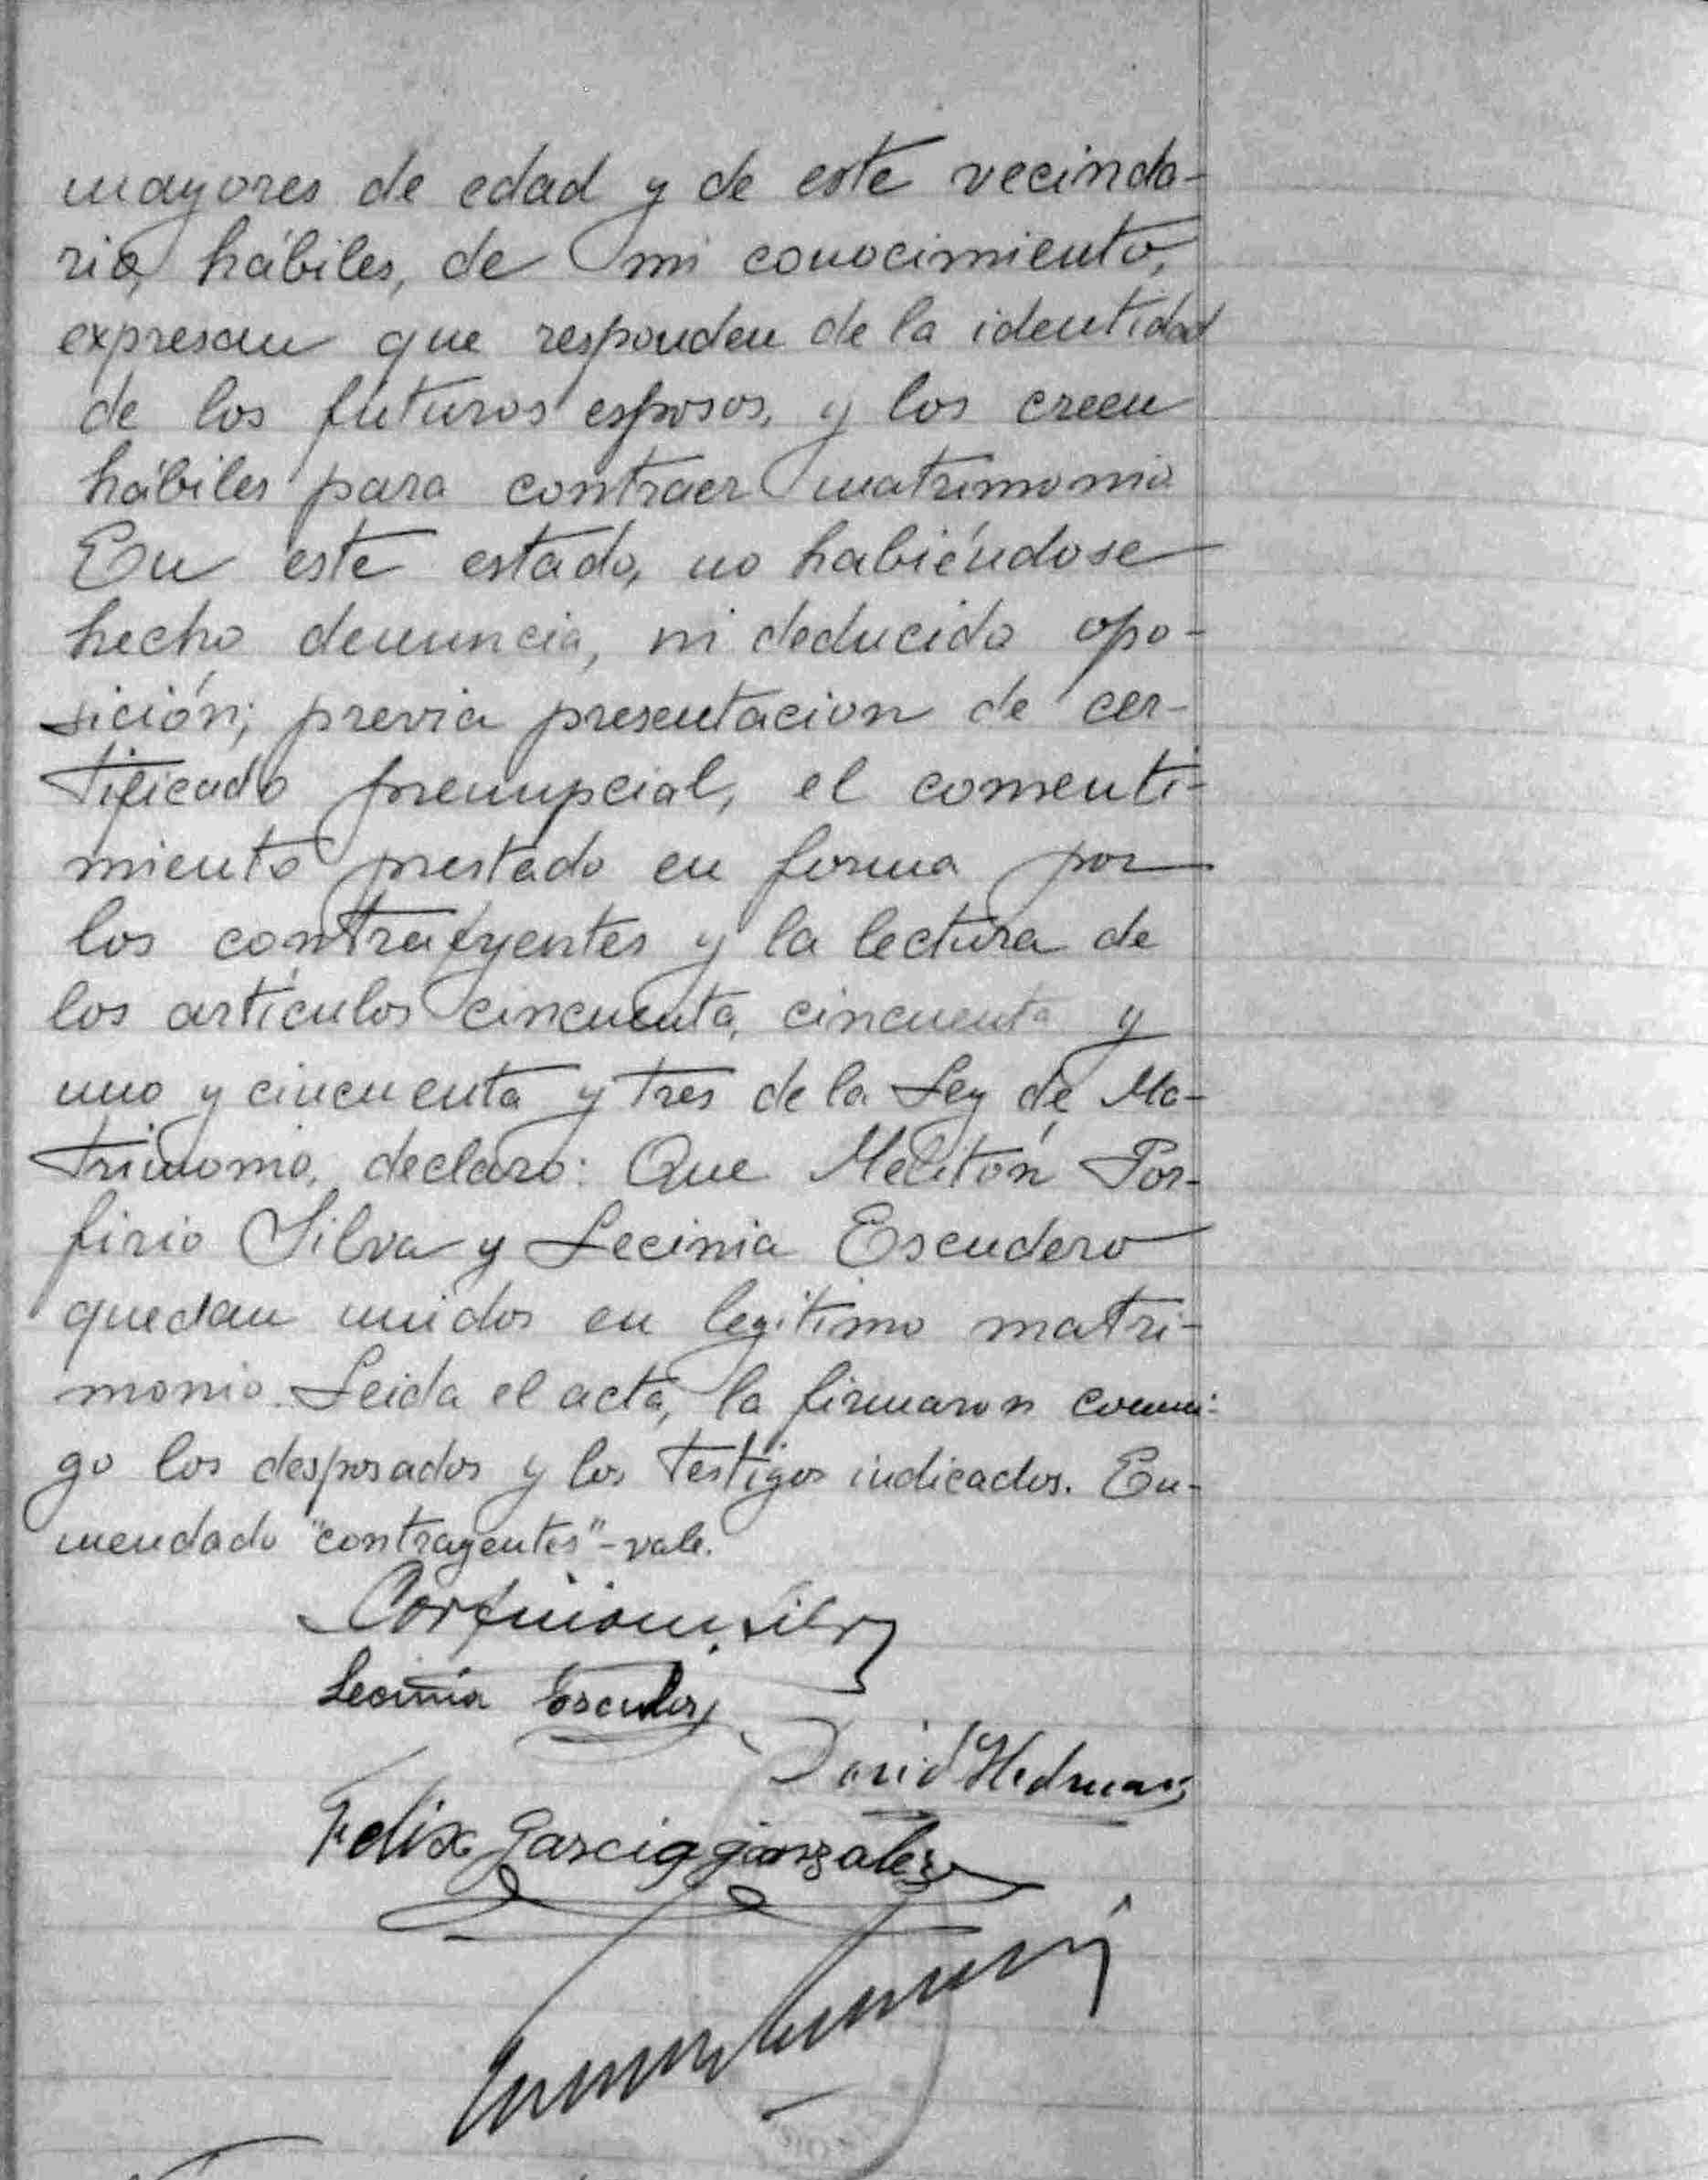 mayores de edad y de este vecinda-
rio, hábiles, de mi conocimiento,
expresan que responden de la identidad
de los futuros esposos, y los creen
hábiles para contraer matrimonio
En este estado, no habiéndose
hecho denuncia, ni deducido opo-
sición; previa presentacion de cer-
tificado prenupcial, el consenti-
miento prestado en forma por
los contrayentes y la lectura de
los artículos cincuenta, cincuenta y
uno y cincuenta y tres de la Ley de Ma-
trimonio, declaro: Que Melitón Por-
firio Silva y Lecinia Escudero
quedan unidos en legitimo matri-
monio. Leida el acta, la firmaron conmi-
go los desposados y los testigos indicados. En-
mendado "contrayentes" - vale.
Silva
Lecinia Escudero
David
Felix Garcia gonzalez